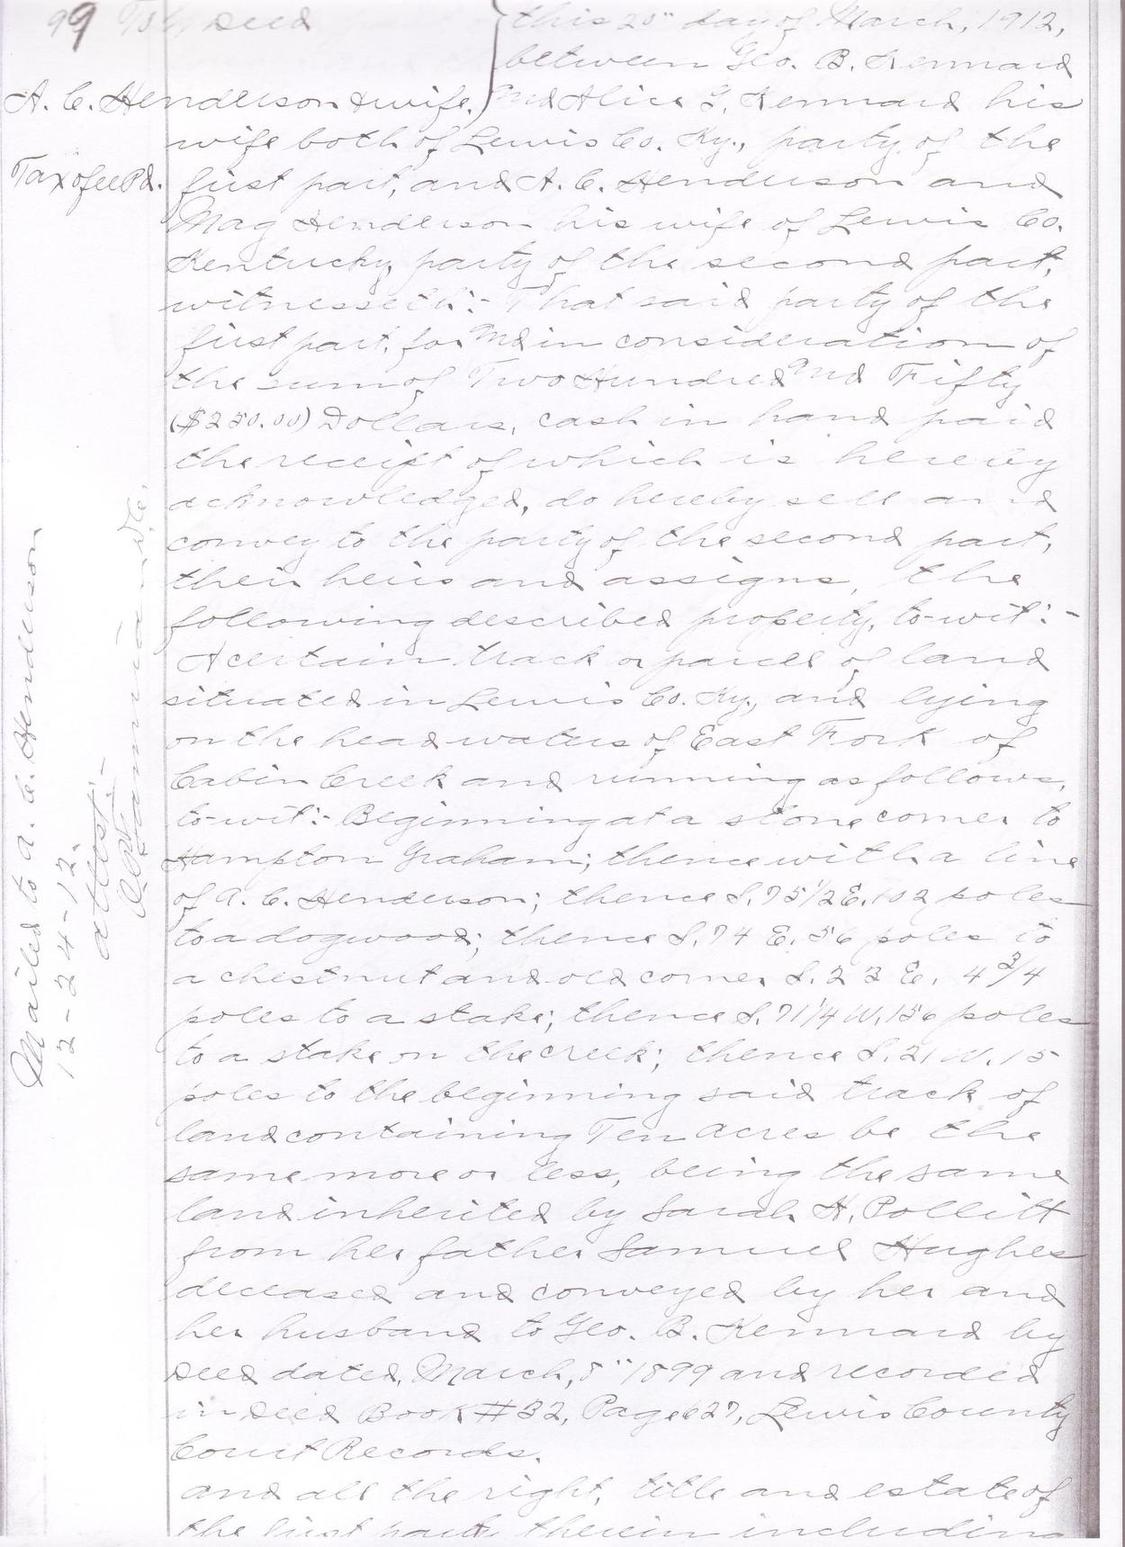 99 To } Deed
this 25" day of March, 1912,
between Geo. B. Kennard
A. C. Henderson & wife.) and Alice L. Kennard his
wife both of Lewis Co. Ky., party of the
Tax & fee Pd. first part, and A. C. Henderson and
Mag Henderson his wife of Lewis Co.
Kentucky, party of the second part,
witnesseth:- That said party of the
first part, for and in consideration of
the sum of Two Hundred and Fifty
($250.00) Dollars, cash in hand paid
the receipt of which is hereby
acknowledged, do hereby sell and
convey to the party of the second part,
their heirs and assigns, the
following described property, to-wit:-
A certain track or parcel of land
situated in Lewis Co. Ky., and lying
on the head waters of East Fork of
Cabin Creek and running as follows,
to-wit:- Beginning at a stone corner to
Hampton Graham; thence with a line
of A. C. Henderson; thence S. 75 1/2 E. 102 poles
to a dogwood; thence S. 74 E. 56 poles to
a chestnut and old corner S. 23 E. 4 3/4
poles to a stake; thence S. 71 1/4 W. 156 poles
to a stake on the creek; thence S. 21 W. 15
poles to the beginning said track of
land containing Ten acres be the
same more or less, being the same
land inherited by Sarah H. Pollitt
from her father Samuel Hughes
deceased and conveyed by her and
her husband to Geo. B. Kennard by
deed dated, March, 8" 1899 and recorded
in Deed Book #32, Page 627, Lewis County
Court Records.
and all the right, title and estate of
the first party therein including
Mailed to A. C. Henderson
12-24-12.
attest:-
D.C.